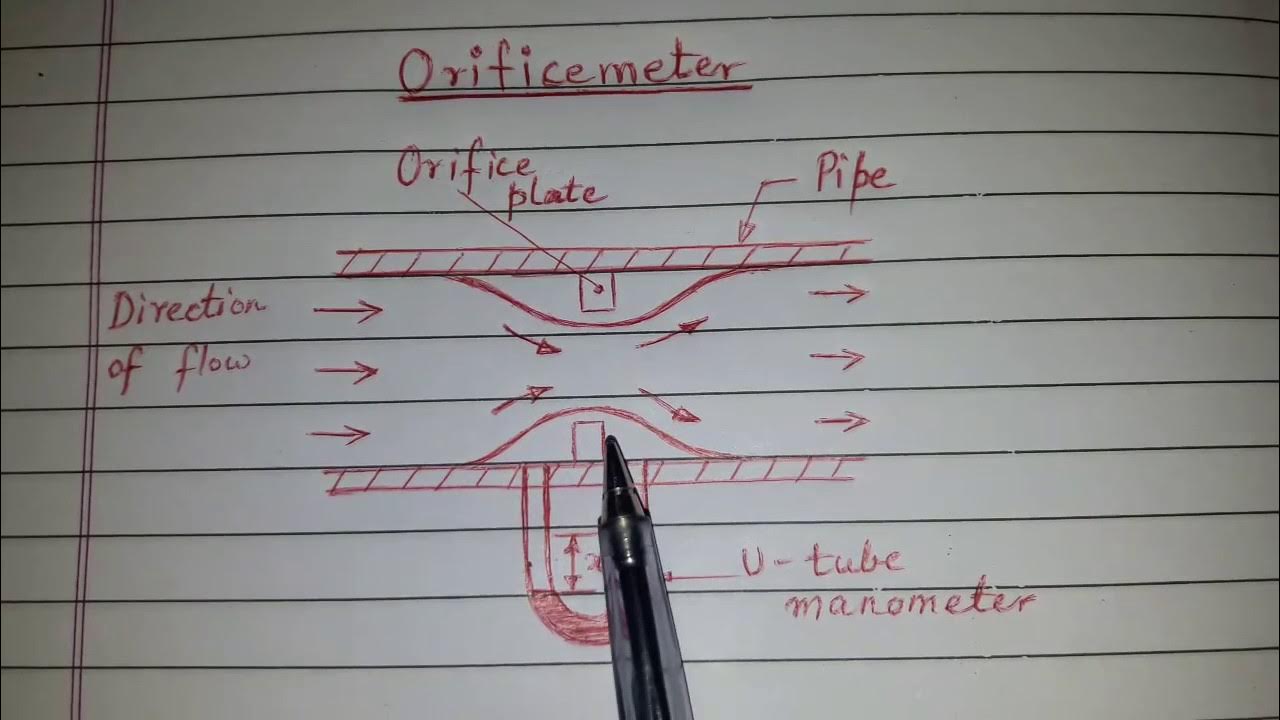 Orificemeter
Orifice
plate
Pipe
Direction
of flow
x
U-tube
manometer